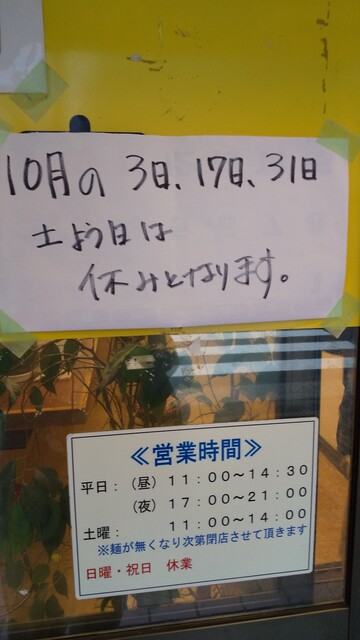 10月の 3日、17日、31日
土よう日は
休みとなります。
≪営業時間≫
平日：（昼）11：00～14：30
（夜）17：00～21：00
土曜： 11：00～14：00
※麺が無くなり次第閉店させて頂きます
日曜・祝日 休業